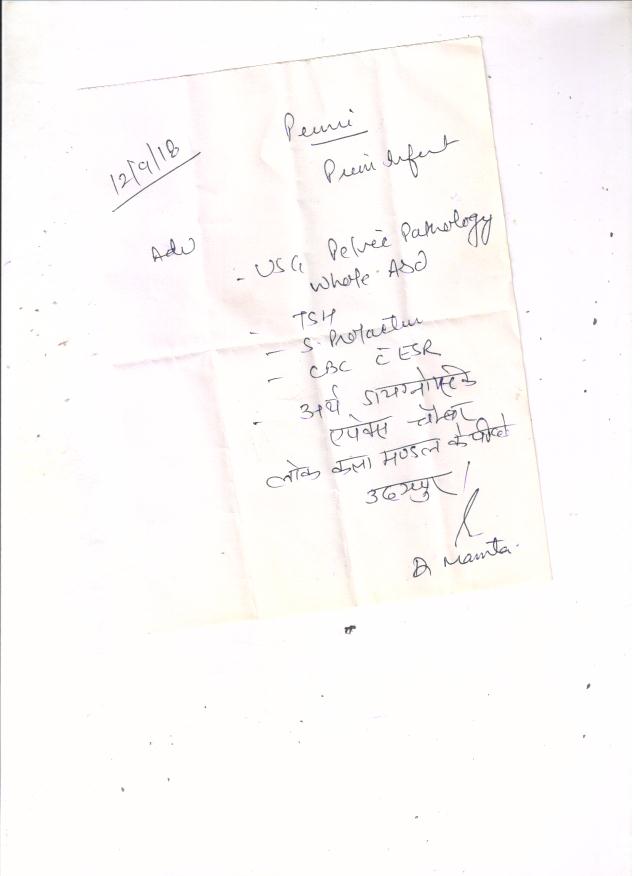 12/9/18
Pemni
Prim Infert
Adv
- USG Pelvic Pathology
Whole Abd
- TSH
- S. Prolactin
- CBC c̄ ESR
- अर्थ डायग्नोस्टिक
एपेक्स चैम्बर
लोक कला मण्डल के पीछे
उदयपुर
Dr Mamta.